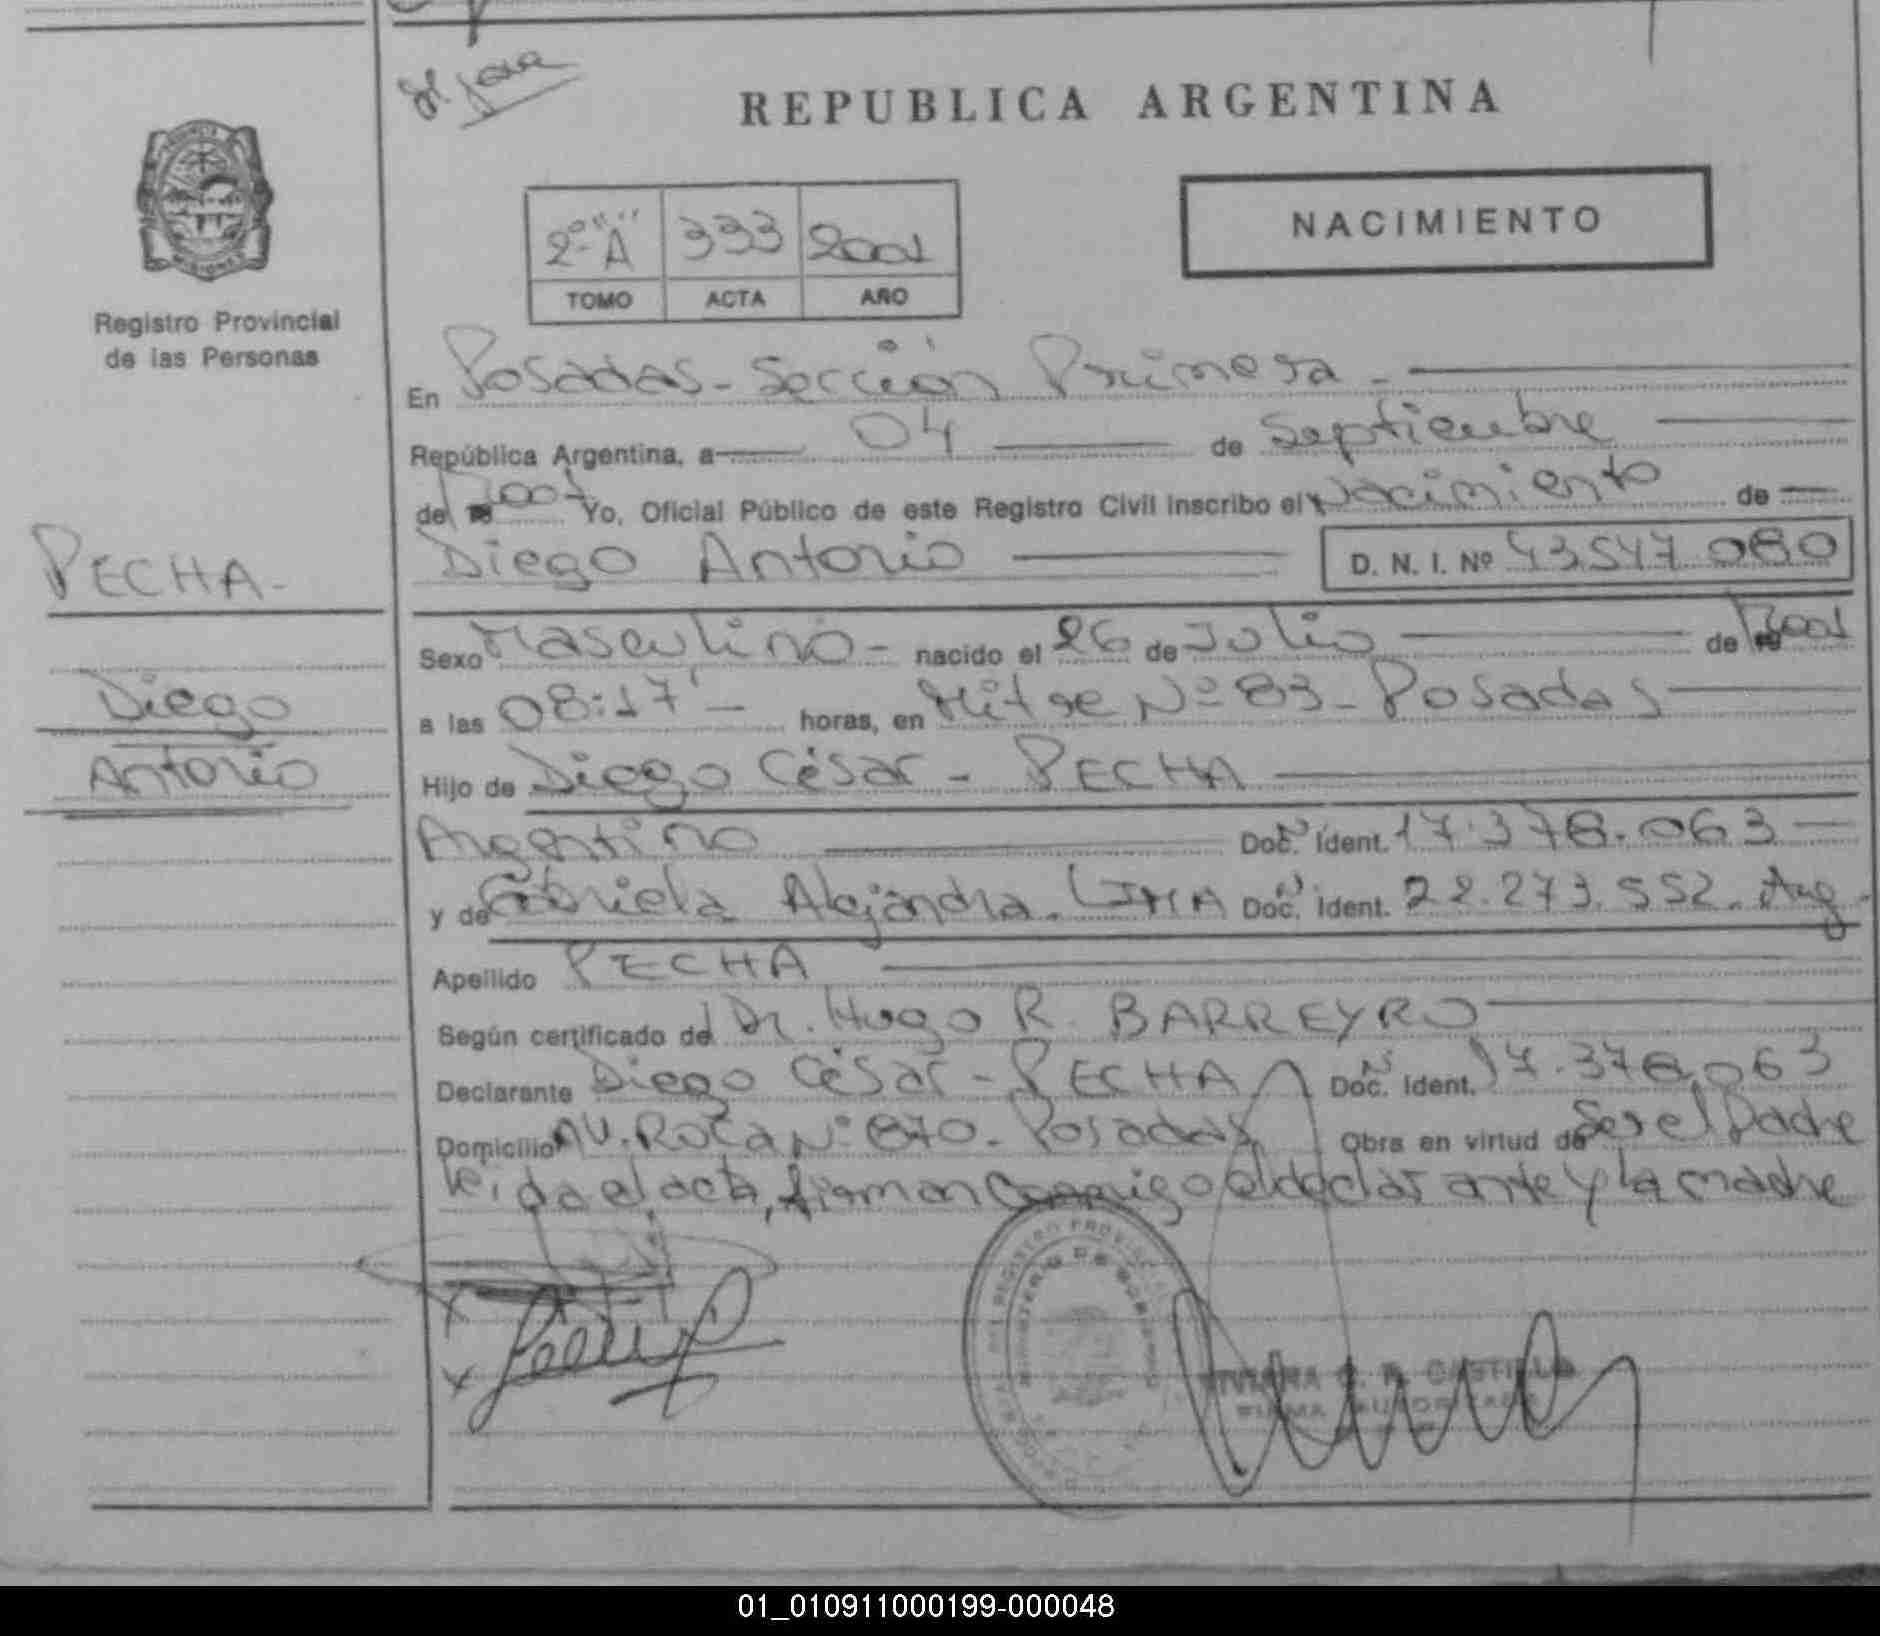 REPUBLICA ARGENTINA
NACIMIENTO
2º "A" 333 2001
TOMO ACTA AÑO
PROVINCIA
MISIONES
Registro Provincial
de las Personas
En Posadas - Sección Primera -
República Argentina, a 04 de Septiembre
de 2001 Yo, Oficial Público de este Registro Civil inscribo el Nacimiento de
Diego Antonio D. N. I. Nº 43.547.080
PECHA -
Diego
Antonio
Sexo Masculino - nacido el 26 de Julio de 2001
a las 08:17' - horas, en Mitre Nº 83 - Posadas
Hijo de Diego César - PECHA
Argentino Doc. Ident. 17.378.063
y de Gabriela Alejandra. LIMA Doc. Ident. 22.273.552. Arg.
Apellido PECHA
Según certificado del Dr. Hugo R. BARREYRO
Declarante Diego César - PECHA Doc. Ident. 17.378.063
Domicilio AV. Roca Nº 870 - Posadas Obra en virtud de Ser el Padre
leida el acta, firman conmigo el declarante y la madre
REGISTRO PROVINCIAL
MINISTERIO DE GOBIERNO
CASTILLO
FIRMA AUTORIZADA
01_010911000199-000048